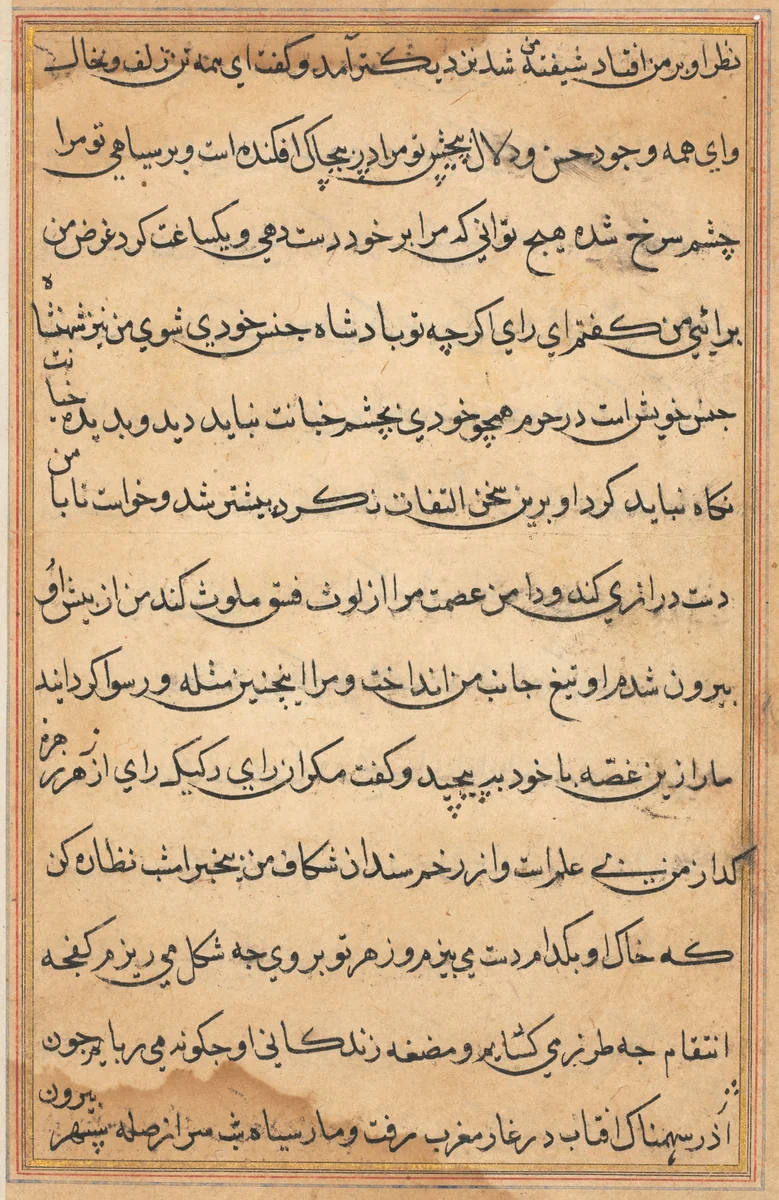 نظر او بر من افتاد شیفته من شد نزدیکتر آمد و گفت ای همه تن زلف و خال
وای همه وجود حسن و دلال پیچش تو مرا در پیچاک افکنده است و بر سیاهی تو مرا
چشم سرخ شده هیچ توانی که مرا بر خود دست دهی و یکساعت کرد غرض من
برائی من گفتم ای رای اگرچه تو بادشاه جنس خودی شوی من نیز شهنشاه
جنس خویش است در حرم همچو خودی بچشم خیانت نباید دید و بدیده خیانت
نگاه نباید کرد او برین سخن التفات نکرد پیشتر شد و خواست تا با من
دست درازی کند و دامن عصمت مرا از لوث فسق ملوث کند من از پیش او
بیرون شدم او تیغ جانب من انداخت و مرا اینچنین مثله و رسوا گردانید
مار ازین غصه با خود بپیچید و گفت مکر ان رای رکیک رای از زهر زهره
کداز من بی علم است و از زخم سندان شکاف من بیخبر امشب نظاره کن
که خاک او بکدام دست می بیزم و زهر تو بر وی چه شکل می ریزم کفچه
انتقام چه طرز می کشایم و مضغه زندگانی او چگونه می ربایم چون
اژدر سهمناک افتاب در غار مغرب رفت و مار سیاه شب سر از صله سپهر بیرون